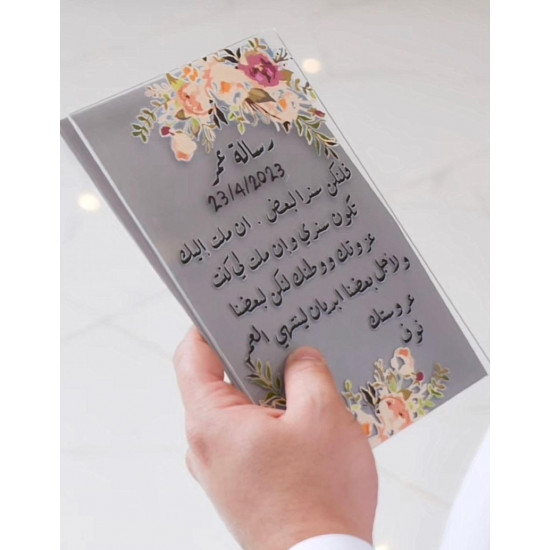 رسالة عمر
23/4/2023
فلنكن سنرا لبعض . ان ملت إليك
تكون سندي وإن ملت لي كنت
عزوتك ووطنك لنكن لبعضنا
ولأجل بعضنا ابديان لينتهي العمر
عروستك
نوف